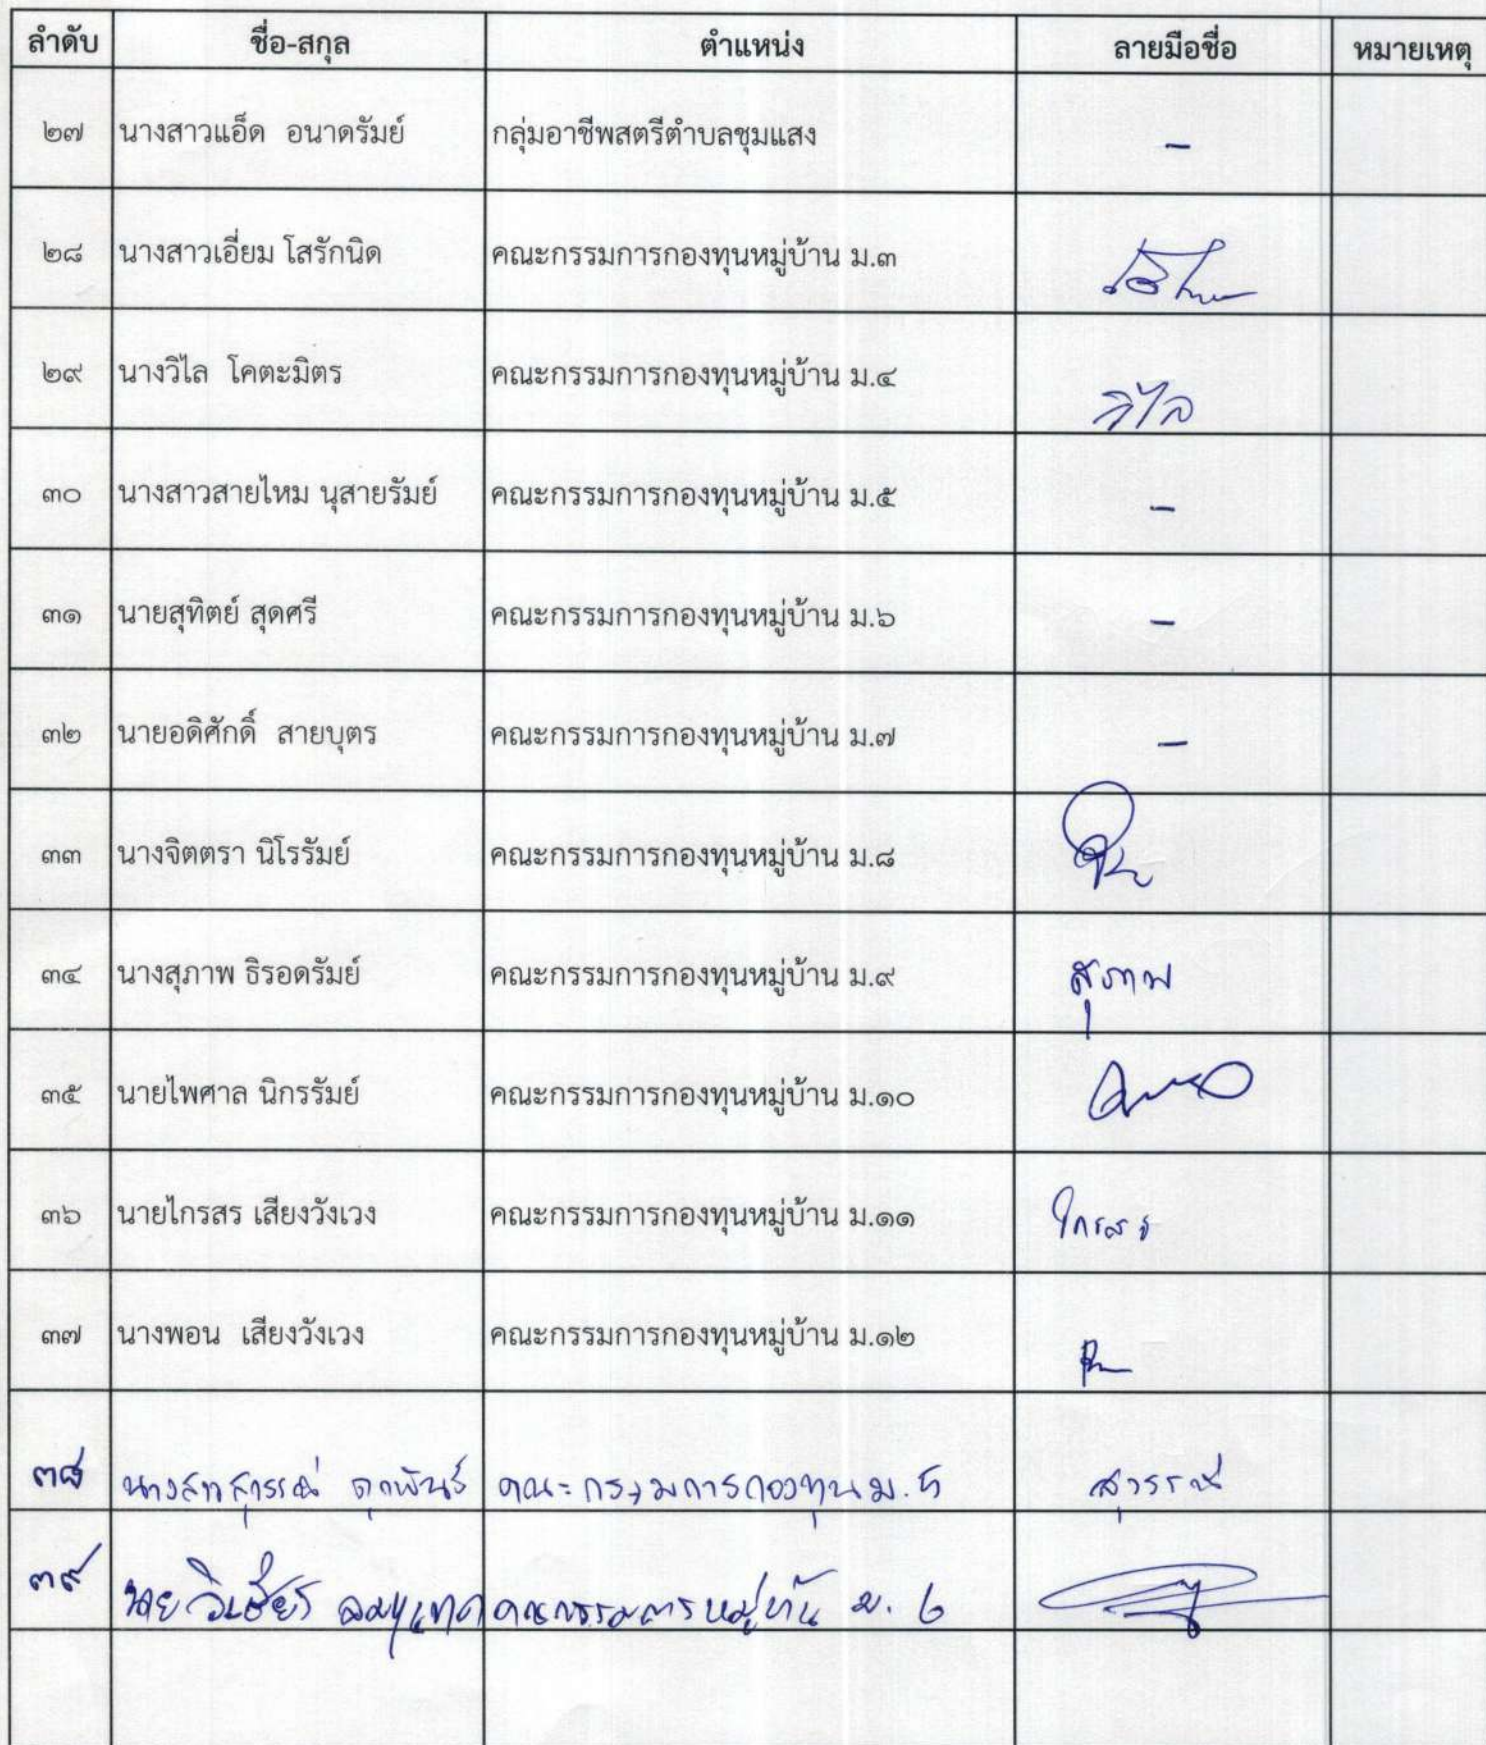 ลำดับ ชื่อ-สกุล ตำแหน่ง ลายมือชื่อ หมายเหตุ
๒๗ นางสาวแอ็ด อนาดรัมย์ กลุ่มอาชีพสตรีตำบลชุมแสง –
๒๘ นางสาวเอี่ยม โสรักนิด คณะกรรมการกองทุนหมู่บ้าน ม.๓
๒๙ นางวิไล โคตะมิตร คณะกรรมการกองทุนหมู่บ้าน ม.๔ วิไล
๓๐ นางสาวสายไหม นุสายรัมย์ คณะกรรมการกองทุนหมู่บ้าน ม.๕ –
๓๑ นายสุทิตย์ สุดศรี คณะกรรมการกองทุนหมู่บ้าน ม.๖ –
๓๒ นายอดิศักดิ์ สายบุตร คณะกรรมการกองทุนหมู่บ้าน ม.๗ –
๓๓ นางจิตตรา นิโรรัมย์ คณะกรรมการกองทุนหมู่บ้าน ม.๘
๓๔ นางสุภาพ ธิรอดรัมย์ คณะกรรมการกองทุนหมู่บ้าน ม.๙ สุภาพ
๓๕ นายไพศาล นิกรรัมย์ คณะกรรมการกองทุนหมู่บ้าน ม.๑๐
๓๖ นายไกรสร เสียงวังเวง คณะกรรมการกองทุนหมู่บ้าน ม.๑๑ ไกรสร
๓๗ นางพอน เสียงวังเวง คณะกรรมการกองทุนหมู่บ้าน ม.๑๒
๓๘ คณะกรรมการกองทุน ม. 5 สุวรรณี
๓๙ นาย วิเชียร คณะกรรมการหมู่บ้าน ม. 6